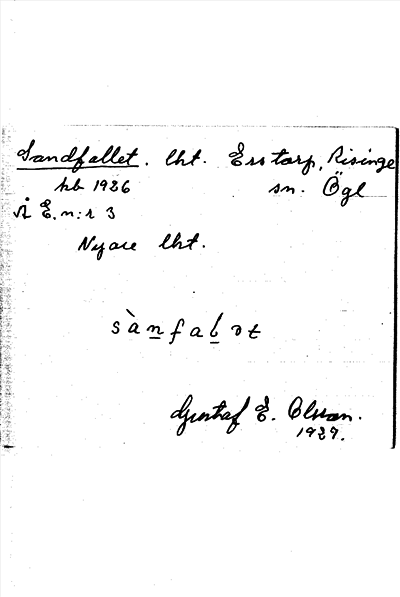 Sandfallet. lht. Erstorp, Risinge
kb 1926 sn. Ögl
på E. n:r 3
Nyare lht.
sànfalət
Gustaf E. Olsson.
1927.